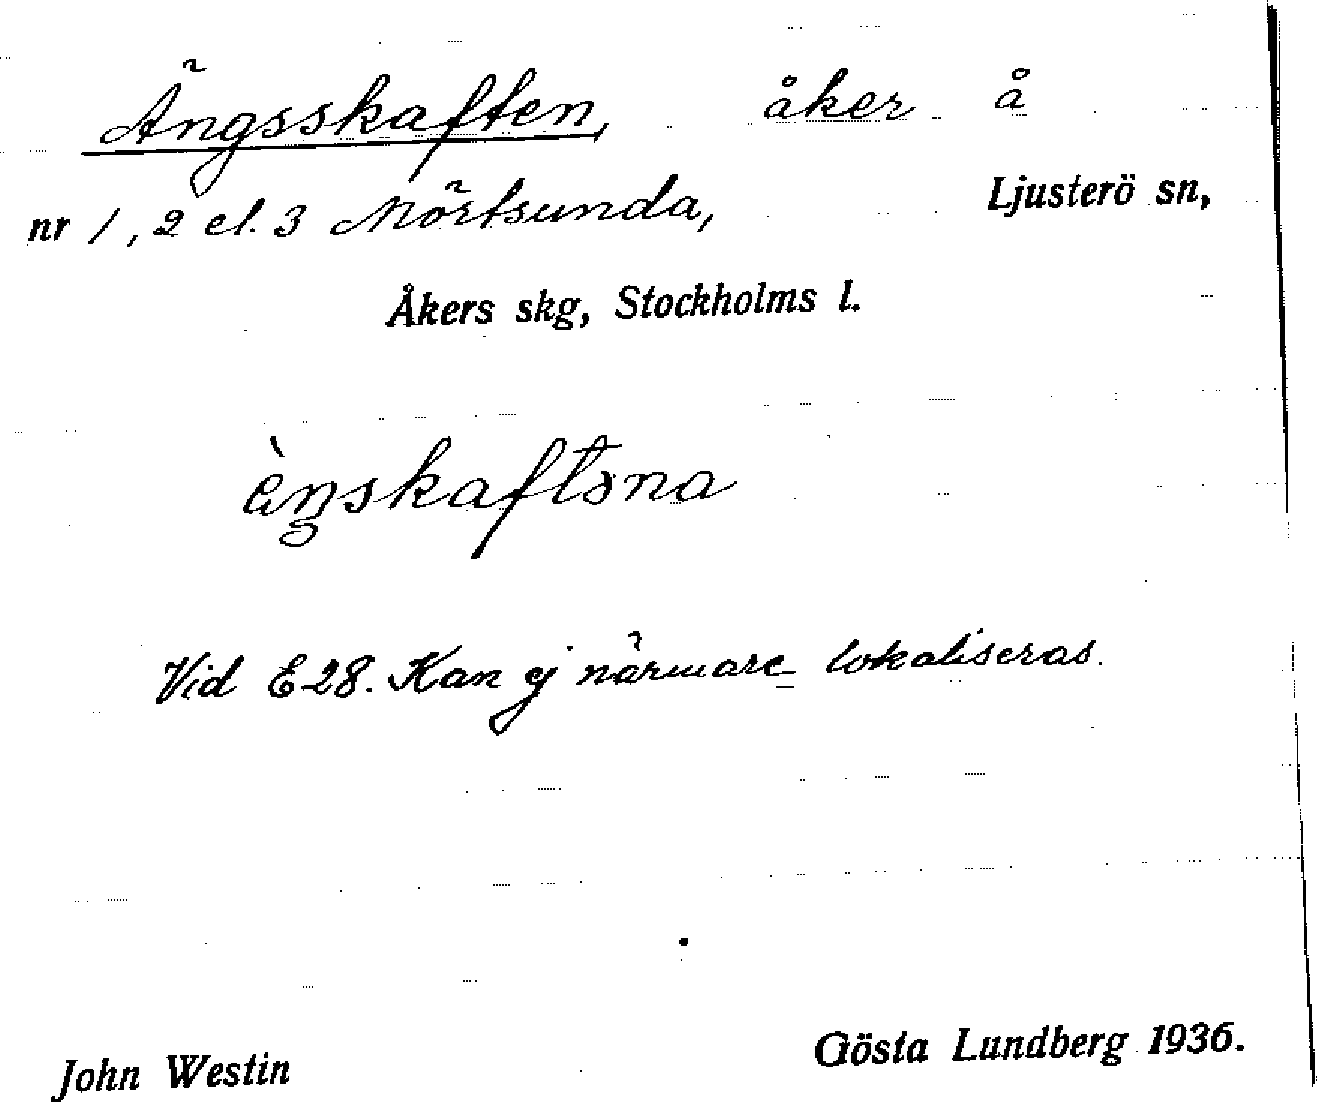 Ängsskaften, åker å
nr 1, 2 el. 3 Mörtsunda, Ljusterö sn,
Åkers skg, Stockholms l.
ὲŋskaftəna
Vid E28. Kan ej närmare lokaliseras.
John Westin Gösta Lundberg 1936.